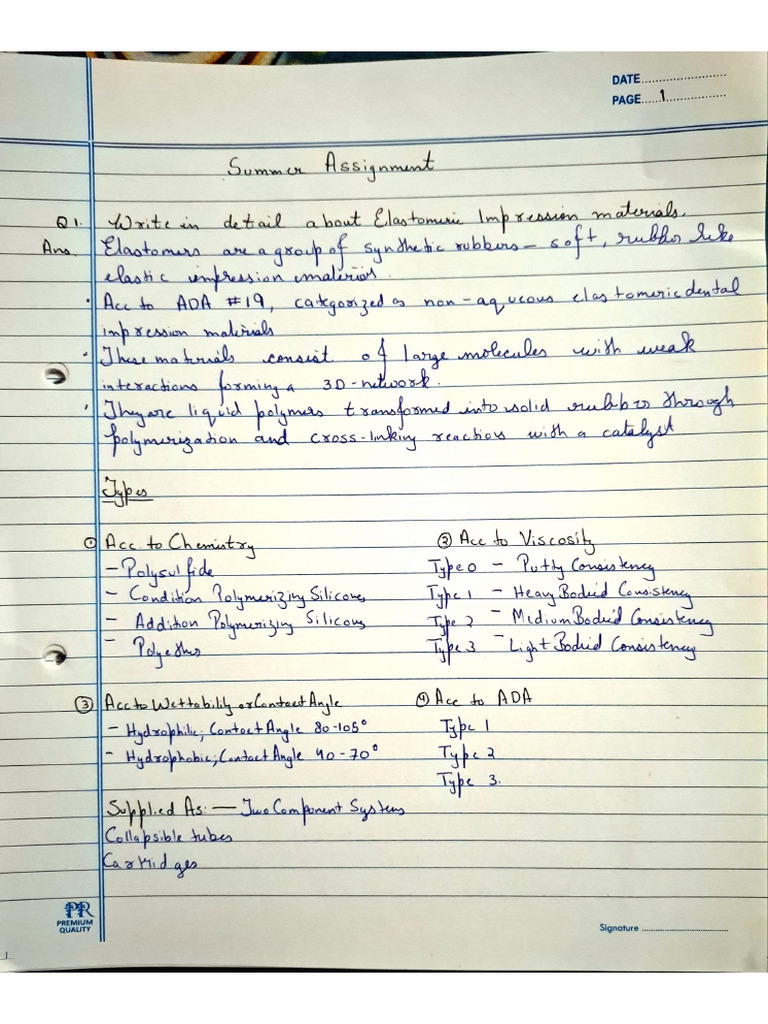 DATE........................
PAGE......1..................
Summer Assignment
Q1. Write in detail about Elastomeric Impression materials.
Ans. Elastomers are a group of synthetic rubbers – soft, rubber like
elastic impression materials.
• Acc to ADA #19, categorized as non-aqueous elastomeric dental
impression materials
• These materials consist of large molecules with weak
interactions forming a 3D-network.
• They are liquid polymers transformed into solid rubber through
polymerization and cross-linking reactions with a catalyst
Types
① Acc. to Chemistry
– Polysulfide
– Condition Polymerizing Silicones
– Addition Polymerizing Silicons
– Polyethers
② Acc to Viscosity
Type 0 – Putty Consistency
Type 1 – Heavy Bodied Consistency
Type 2 – Medium Bodied Consistency
Type 3 – Light Bodied Consistency
③ Acc to Wettability or Contact Angle
– Hydrophilic; Contact Angle 80-105°
– Hydrophobic; Contact Angle 40-70°
④ Acc to ADA
Type 1
Type 2
Type 3.
Supplied As: — Two Component Systems
Collapsible tubes
Cartridges
PR
PREMIUM
QUALITY
Signature ..............................